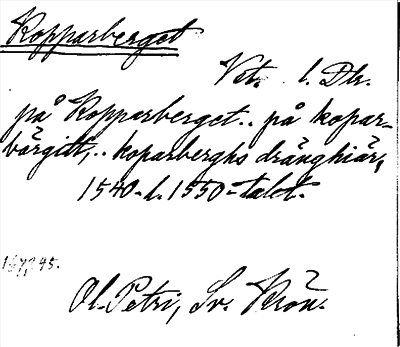 Kopparberget
Vst. l. Dlr.
på Kopparberget.. på kopar-
bärgitt,.. koparberghs dränghiär,
1540-l. 1550-talet.
Ol. Petri, Sv. Krön.